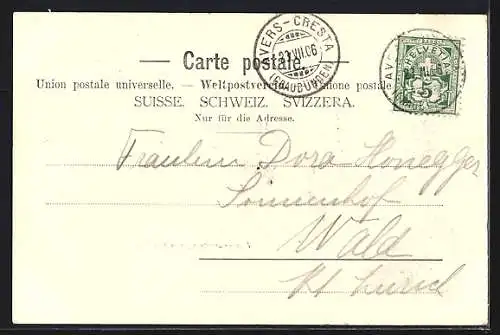 Carte postale.
Union postale universelle. – Weltpostverein. – Unione postale
SUISSE. SCHWEIZ. SVIZZERA.
Nur für die Adresse.
AVERS-CRESTA
23.VII.06
(GRAUBÜNDEN)
HELVETIA
5
AVE
Fräulein Dora Honegger
Sonnenhof
Wald
Kt Zürich